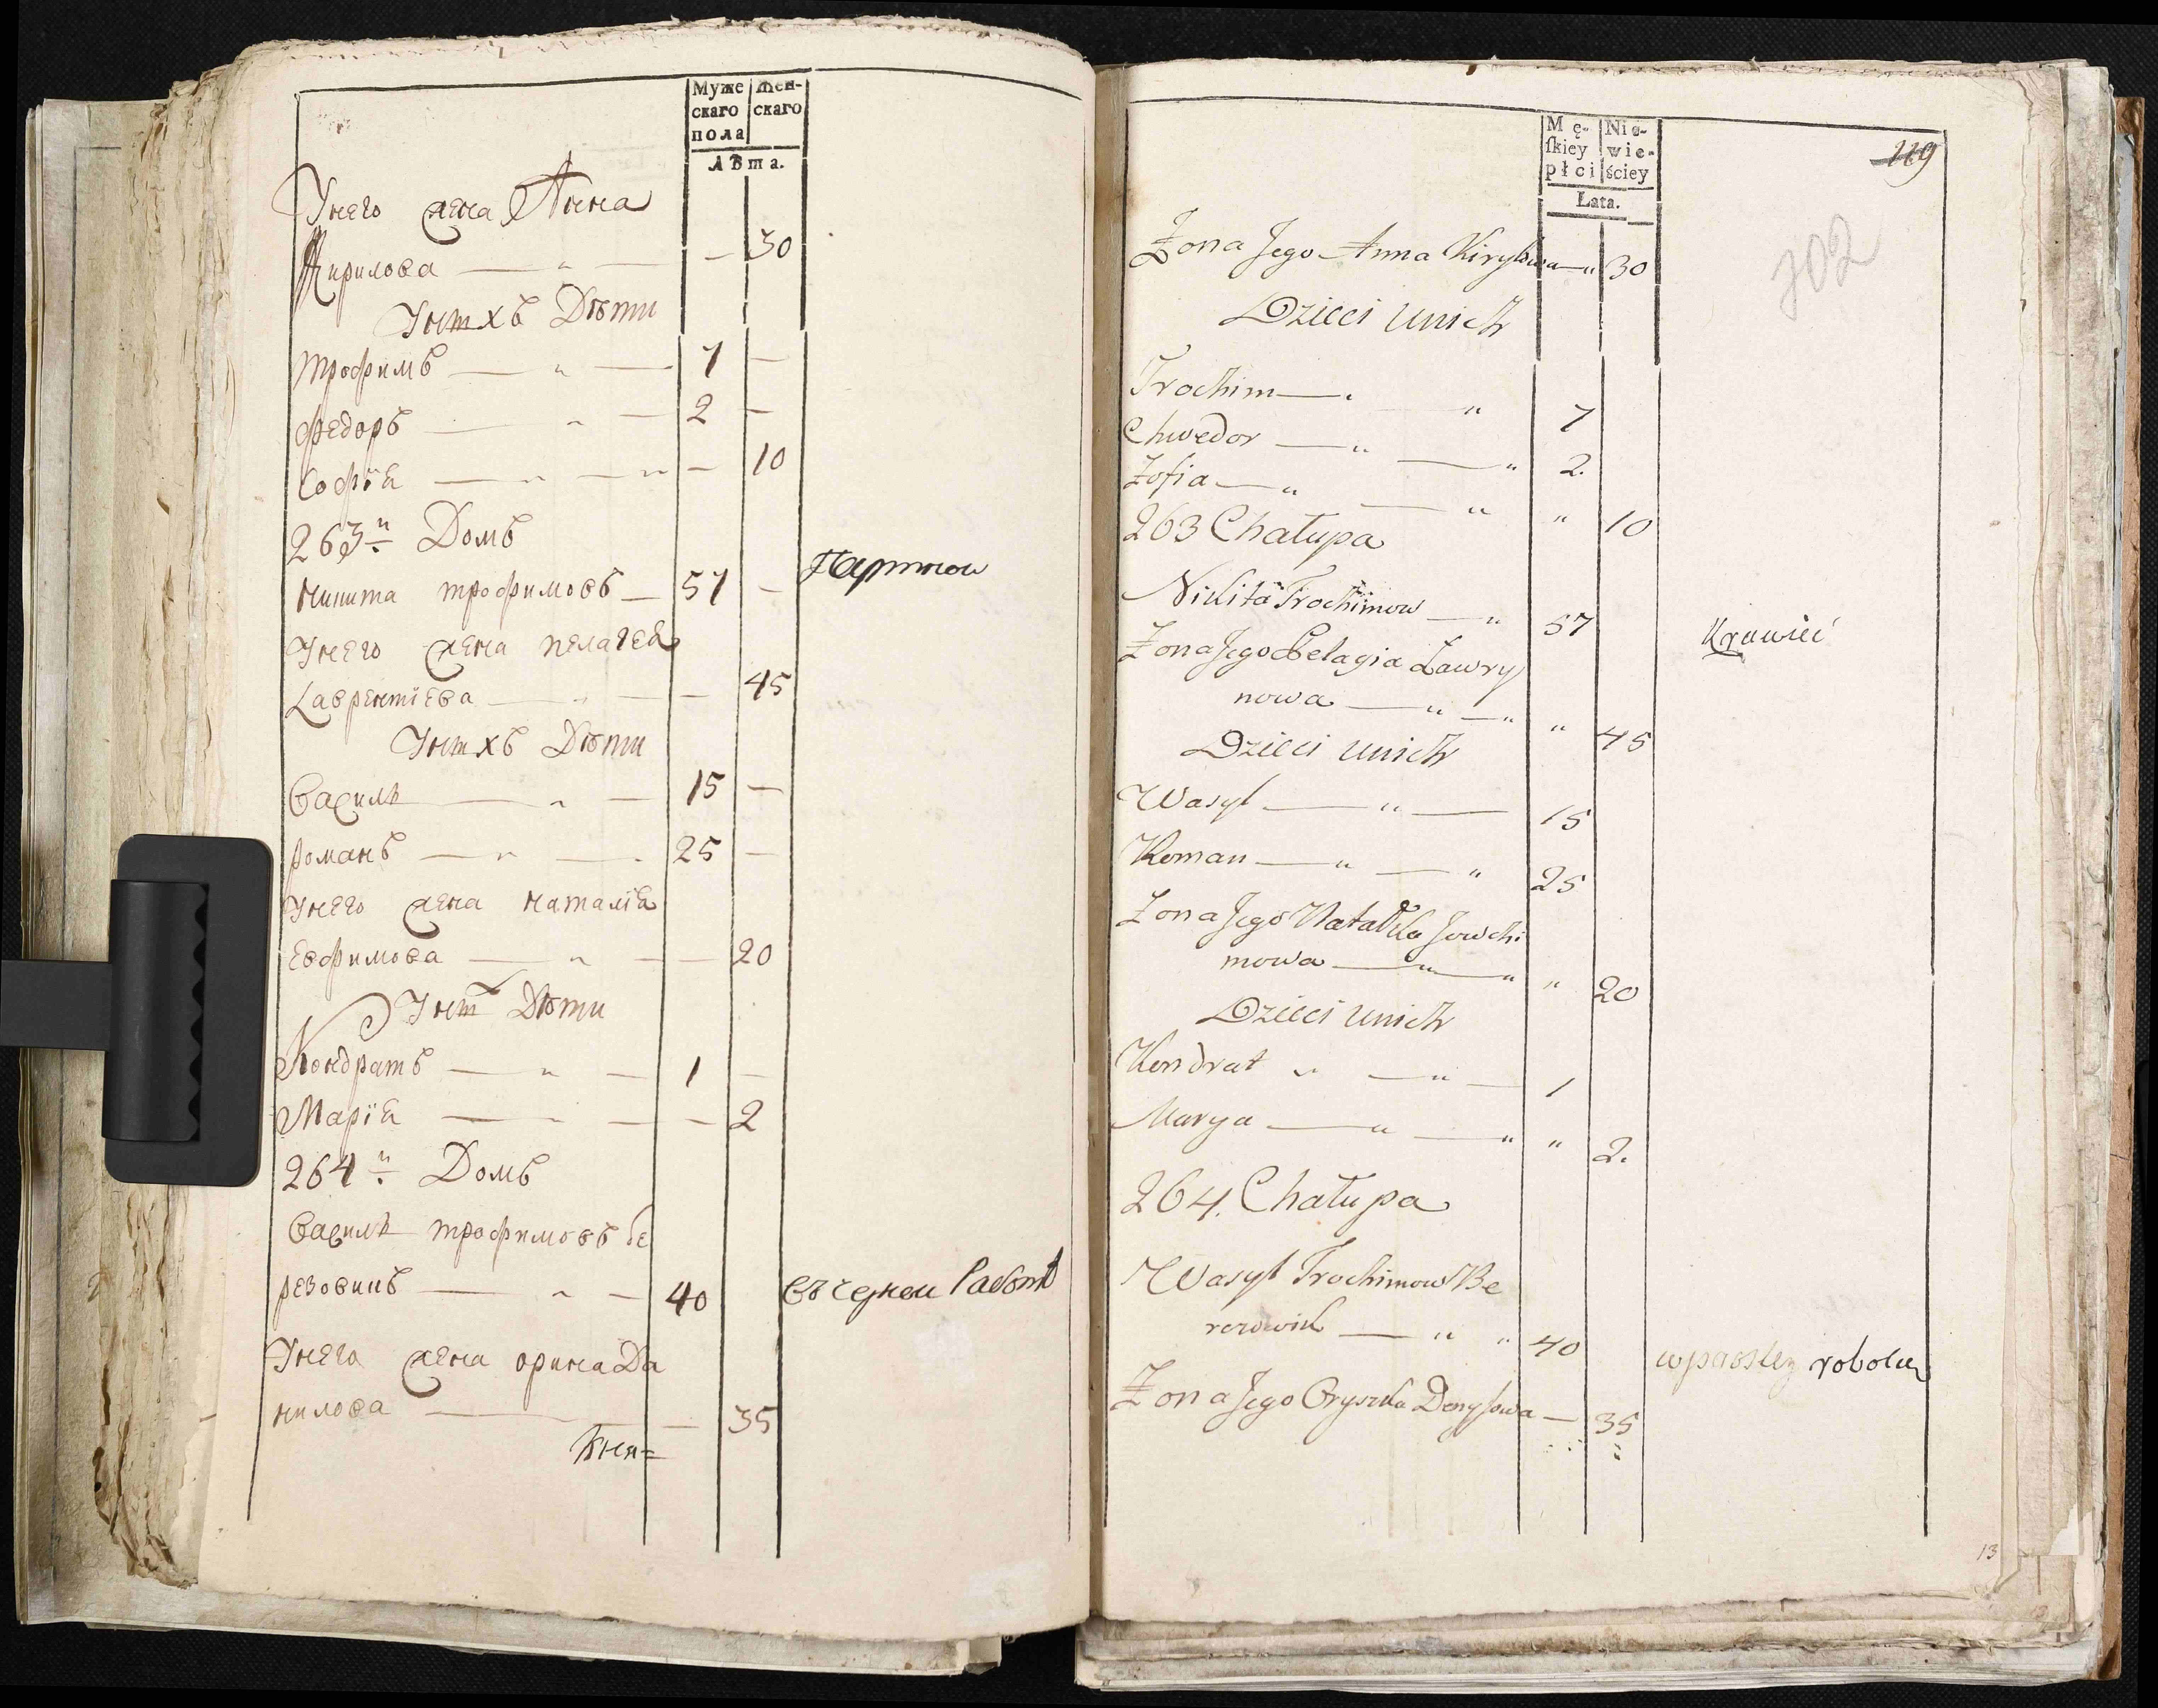 Муже Жен-
скаго скаго
пола
Лѣта.
Унего жена Анна
Кирилова — „ — — 30
Унихъ Дѣти
трофимъ — „ — 7 —
федоръ — „ — 2 —
Софія — „ — „ — 10
263й Домъ
никита трофимовъ — 57 —
Унего жена пелагея
Лаврентіева — „ — — 45
Унихъ Дѣти
Василь — „ — 15 —
романъ — „ — 25 —
Унего жена наталія
Евфимова — „ — — 20
Уних Дѣти
Кондратъ — „ — 1 —
Марія — „ — — 2
264й Домъ
Василь трофимовъ бе
резовикъ — „ — 40
Въ черной Работѣ
Унего жена орина Да
нилова — — 35
Mę- Nie-
ſkiey wie-
płci ściey
Lata.
119
302
Żona Jego Anna Kiryłowa — „ 30
Dzieci unich
Trochim — „ „ 7
Chwedor — „ — „ 2.
Zofia — „ — „ „ 10
263 Chałupa
Nikita Trochimow — „ 57 Krawiec
Żona Jego Pelagia Ławry
nowa — „ — „ „ 45
Dzieci unich
Wasyl — „ — 15
Roman — „ — „ 25
Żona Jego Natalila Jowchi
mowa — „ — „ „ 20
Dzieci unich
Kondrat „ — „ — 1
Marya — „ — „ „ 2.
264. Chałupa
Wasyl Trochimow Be
rezowik — „ „ 40
Żona Jego Oryszka Denysowa — 35
13